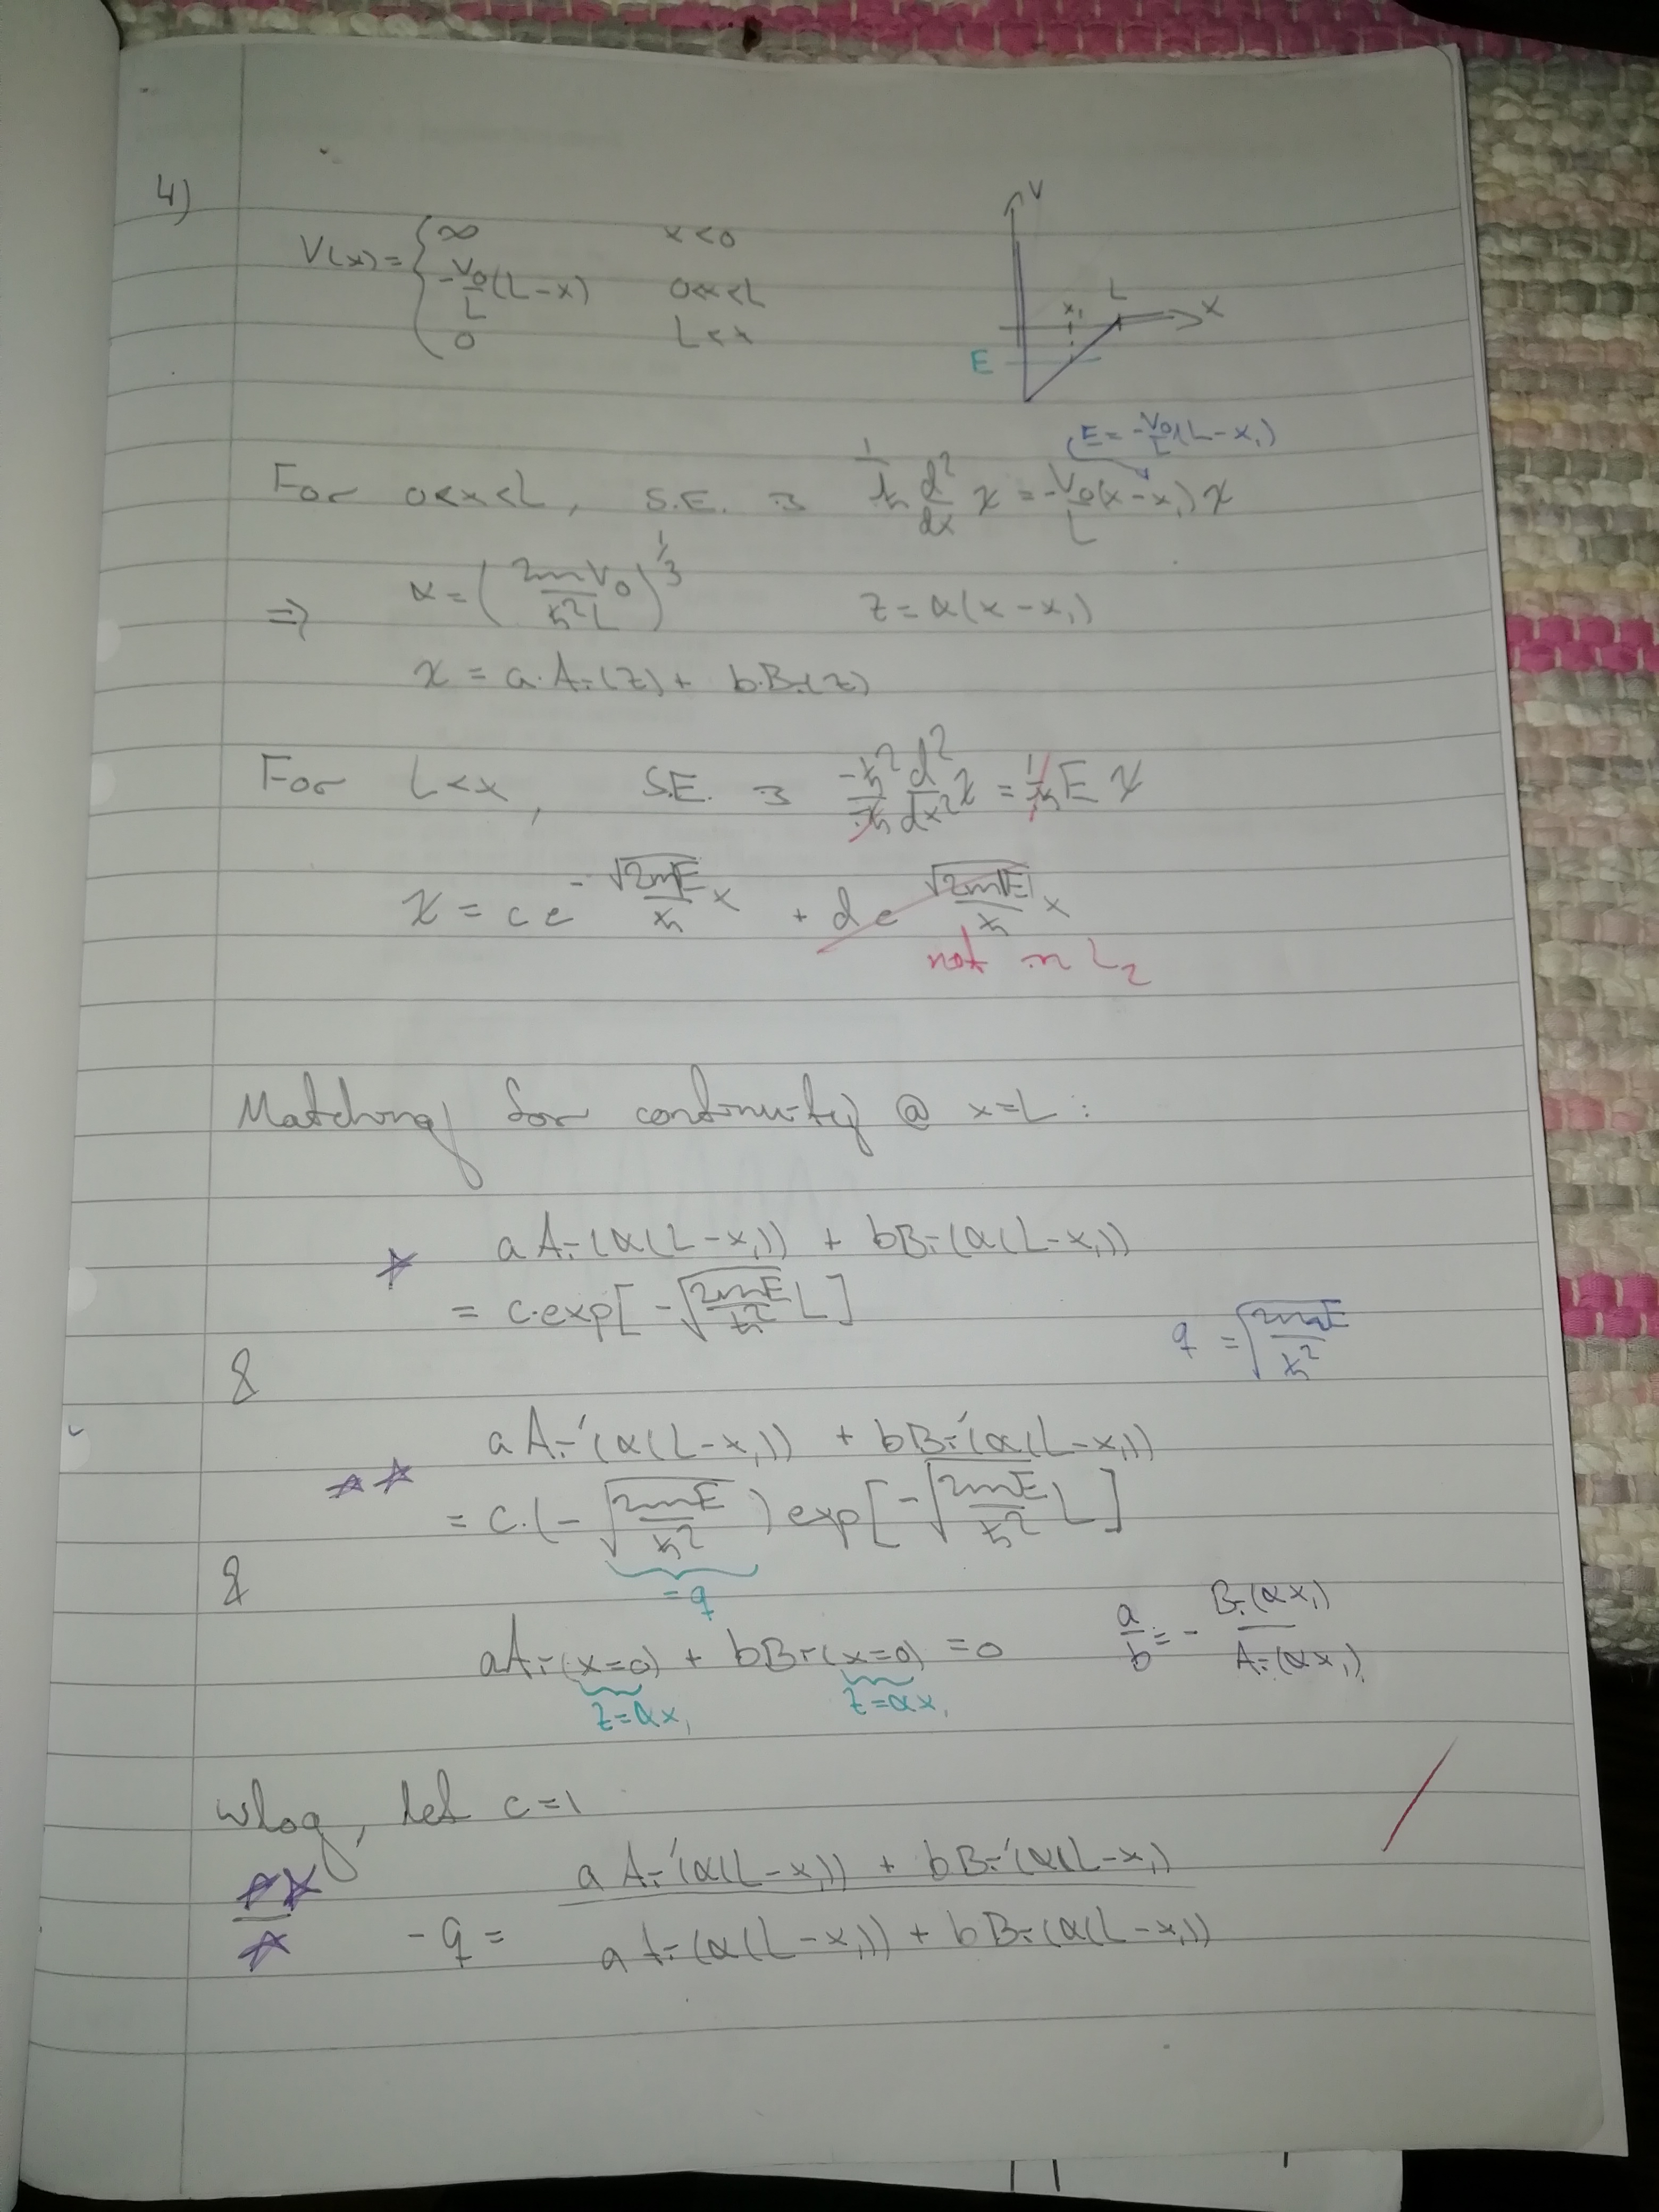 4)
V(x) = { ∞ x<0
-V₀/L (L-x) 0<x<L
0 L<x
V
x₁ L X
E
E = -V₀/L (L-x₁)
For 0<x<L, S.E. ∋ 1/ħ d²/dx χ = -V₀/L (x-x₁) χ
⇒ α = (2mV₀/ħ²L)^1/3 z = α(x-x₁)
χ = a·Ai(z) + b·Bi(z)
For L<x, S.E. ∋ -ħ²/ħ d²/dx² χ = 1/ħ E χ
χ = c e^(-√(2mE)/ħ x) + d e^(√(2m|E|)/ħ x)
not in L₂
Matching for continuity @ x=L:
☆ a Ai(α(L-x₁)) + b Bi(α(L-x₁))
= c·exp[-√(2mE/ħ²) L]
q = √(2mE/ħ²)
&
☆☆ a Ai'(α(L-x₁)) + b Bi'(α(L-x₁))
= c·(-√(2mE/ħ²)) exp[-√(2mE/ħ²) L]
= q
&
a Ai(x=0) + b Bi(x=0) = 0 a/b = - Bi(αx₁)/Ai(αx₁)
z=αx₁ z=αx₁
wlog, let c=1
☆☆/☆ -q = a Ai'(α(L-x₁)) + b Bi'(α(L-x₁)
a Ai(α(L-x₁)) + b Bi(α(L-x₁))